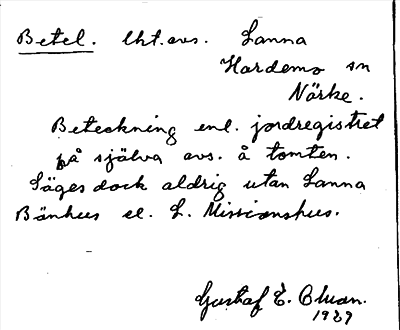 Betel. lht.avs. Lanna
Hardemo sn
Närke.
Beteckning enl. jordregistret
på själva avs. å tomten.
Säges dock aldrig utan Lanna
Bänhus el. L. Missionshus.
Gustaf E.
1929